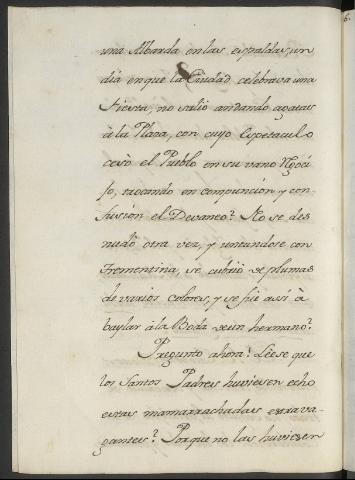 una Albarda en las espaldas, un
dia en que la Ciudad celebrava una
Fiesta, no salió andando agatas
à la Plaza, con cuyo Espetaculo
cesò el Pueblo en su vano Rgocì
jo, trocando en compunciòn y con-
fusiòn el Devaneo? No se des
nudò otra vez, y untandose con
Trementina, se cubriò de plumas
de varios colores, y se fuè assi à
baylar à la Boda de un hermano?
Pregunto ahora: Leese que
los Santos Padres huviesen echo
estas mamarrachadas extrava-
gantes? Porque no las huviesen
6.